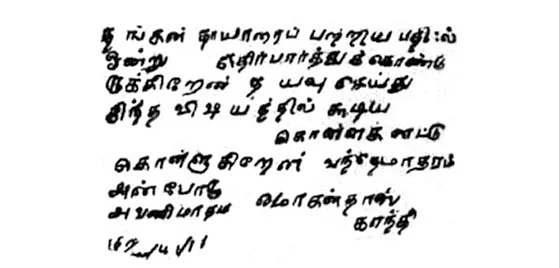 தங்கள் தாயாரைப் பற்றிய பதில்
ஒன்று எதிர்பார்த்துக்கொண்டு
ருக்கிறேன் தயவு செய்து
இந்த விஷயத்தில் கூடிய
கொள்ளக்
கொள்ளுகிறேன் வந்தேமாதரம்
அன்போடு
ஆவணிமாதம் மொகன்தாஸ்
காந்தி